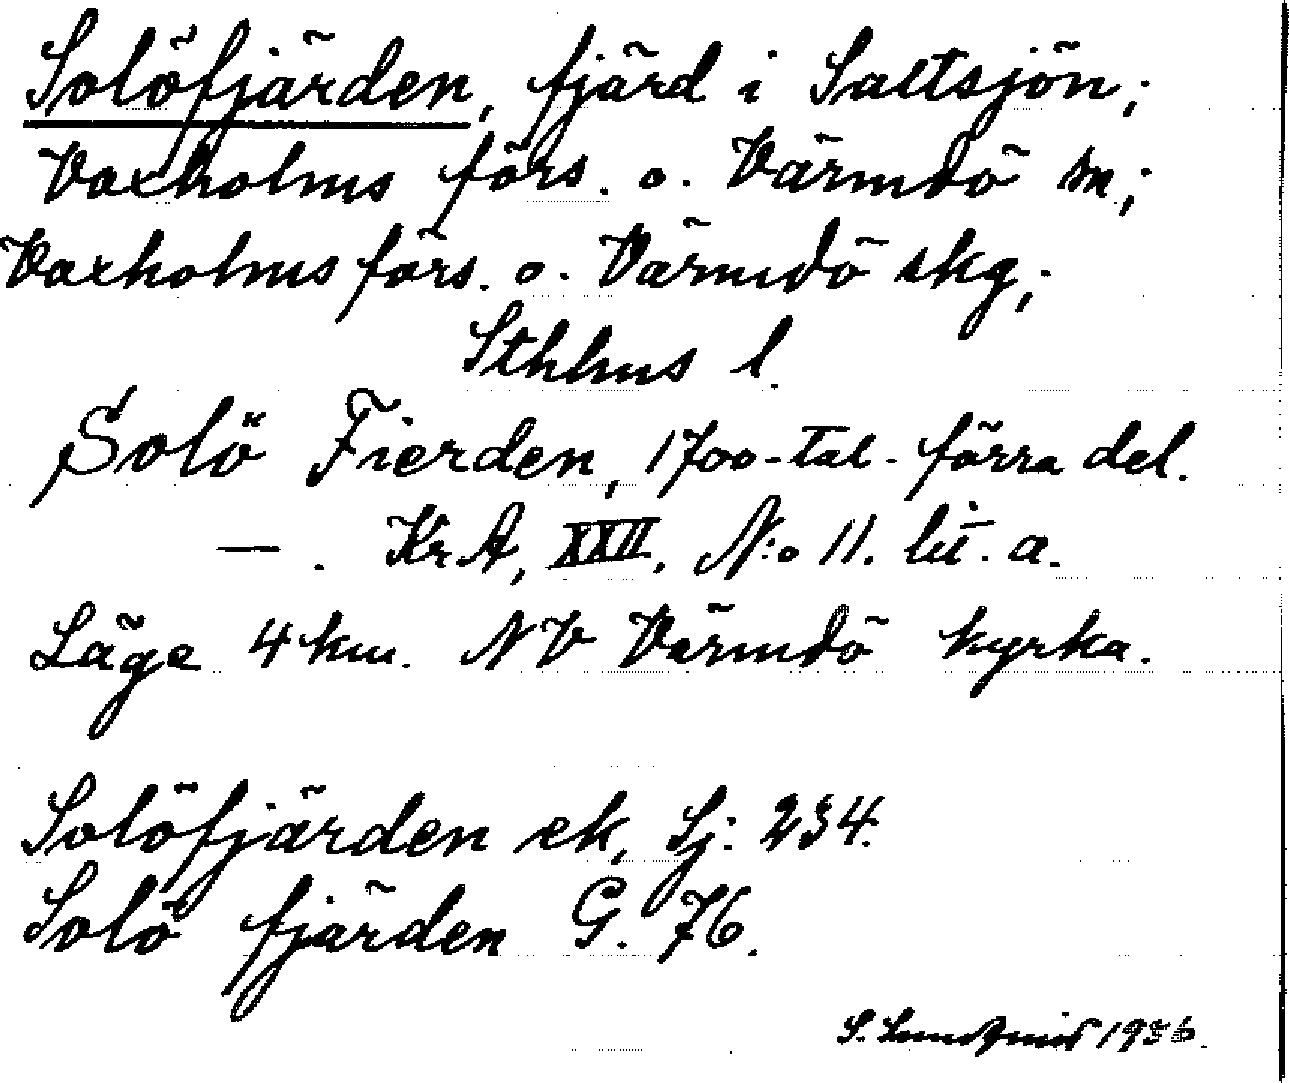 Solöfjärden, fjärd i Saltsjön;
Vaxholms förs. o. Värmdö sn;
Vaxholms förs. o. Värmdö skg;
Sthlms l.
Solö Fierden, 1700-tal. förra del.
— . KrA, XXII. N:o 11. lit. a.
Läge 4 km. NV Värmdö kyrka.
Solöfjärden ek, Sj: 234.
Solö fjärden G. 76.
S. Lundqvist 1936.